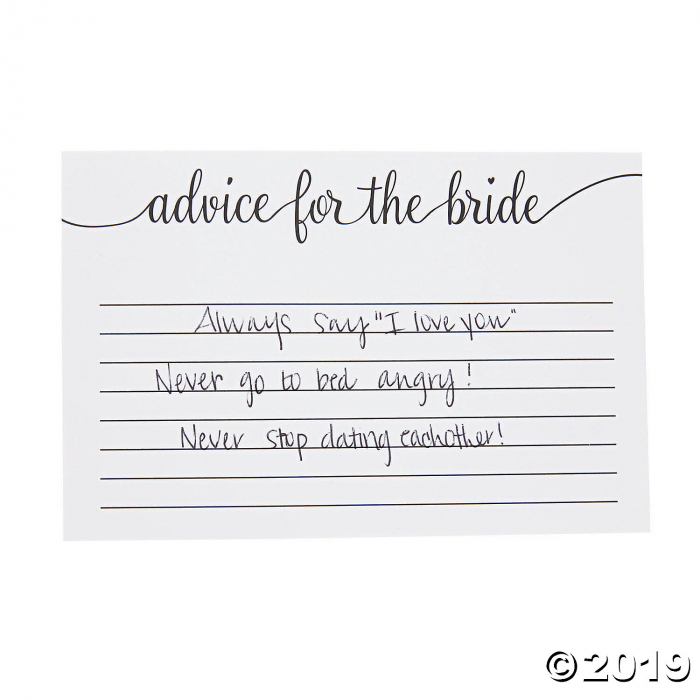 advice for the bride
Always say "I love you"
Never go to bed angry!
Never stop dating eachother!
©2019